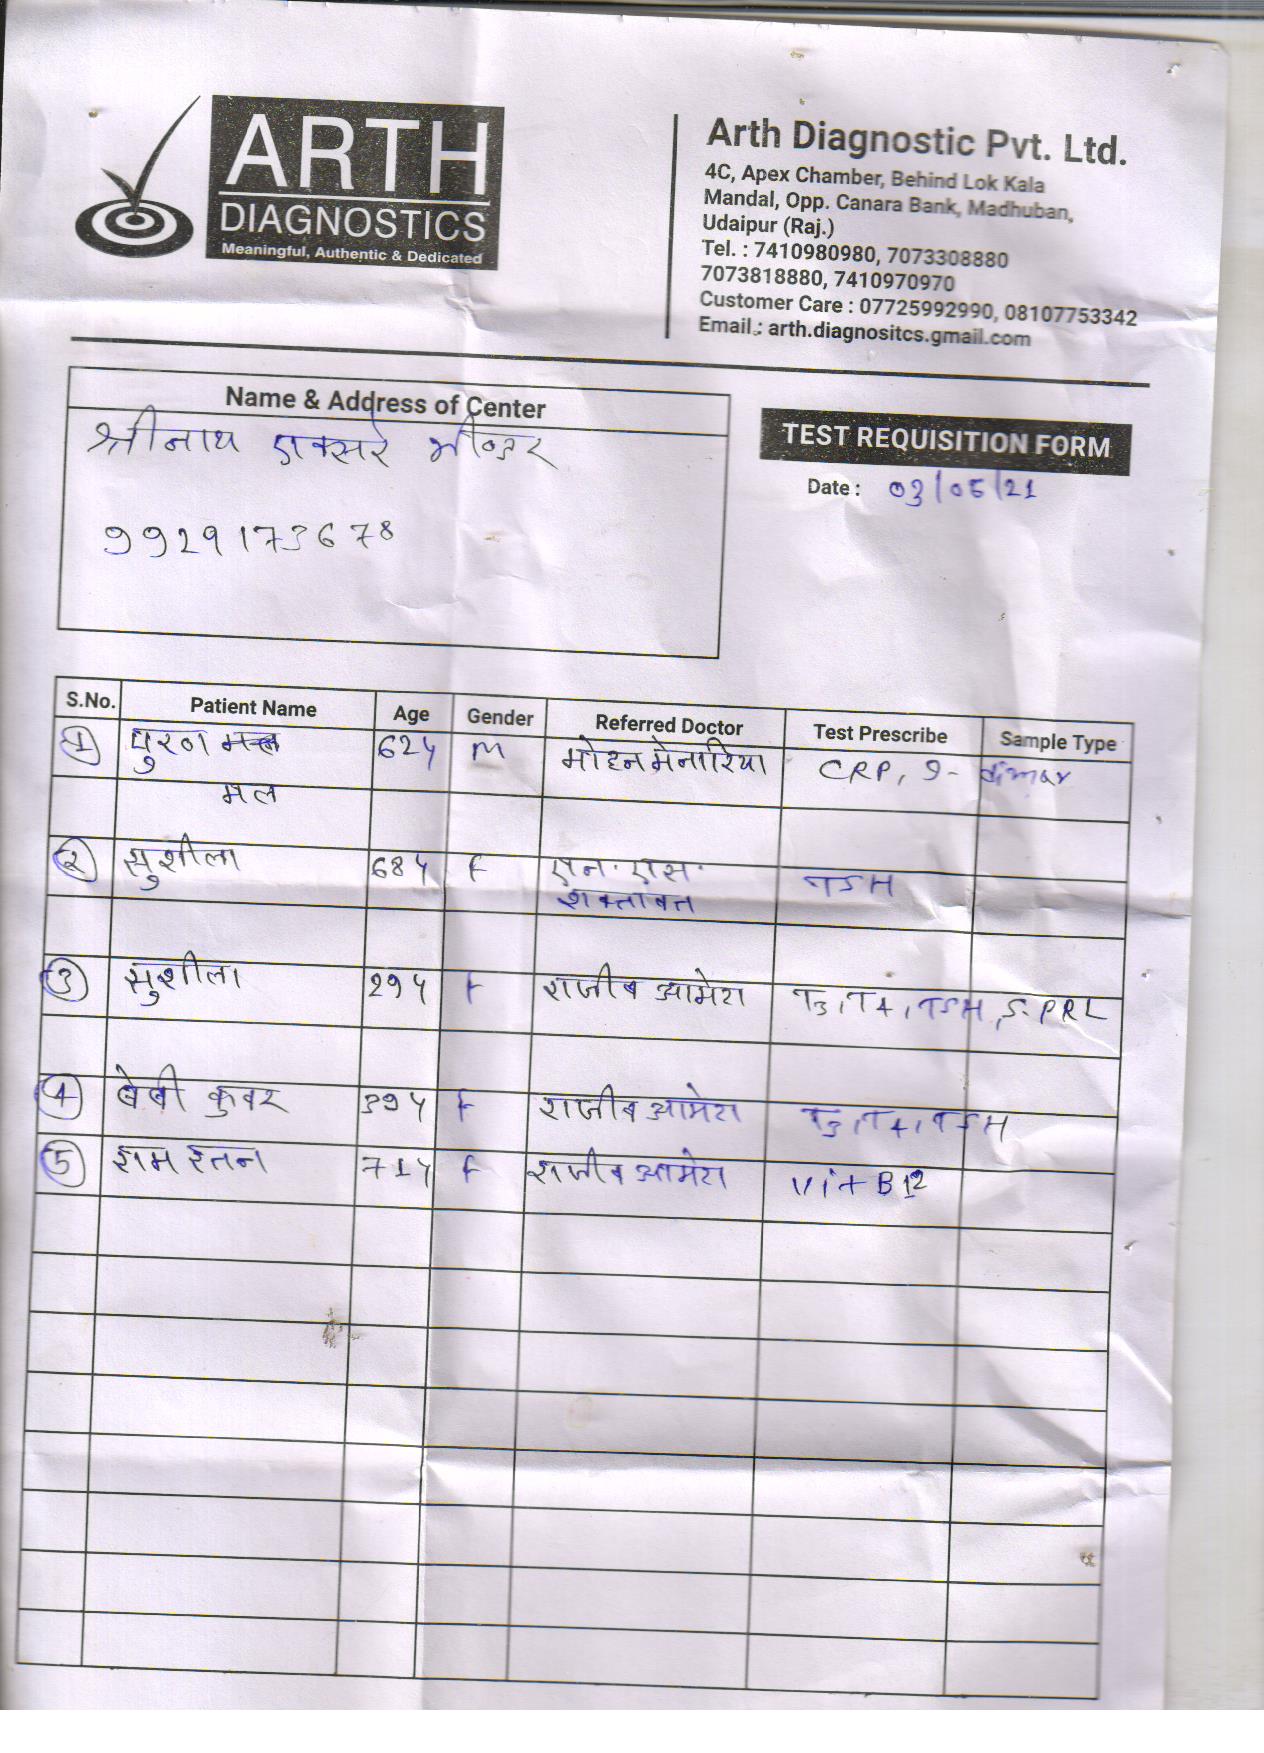 ARTH
DIAGNOSTICS
Meaningful, Authentic & Dedicated
Arth Diagnostic Pvt. Ltd.
4C, Apex Chamber, Behind Lok Kala
Mandal, Opp. Canara Bank, Madhuban,
Udaipur (Raj.)
Tel. : 7410980980, 7073308880
7073818880, 7410970970
Customer Care : 07725992990, 08107753342
Email : arth.diagnositcs.gmail.com
Name & Address of Center
श्रीनाथ एक्सरे भीण्डर
9929173678
TEST REQUISITION FORM
Date : 03/05/21
S.No. Patient Name Age Gender Referred Doctor Test Prescribe Sample Type
1 पुरण 62y M मोहन मेनारिया CRP,
मल
2 सुशीला 68y F एन. एस. TSH
शक्तावत
3 सुशीला 29y F राजीव आमेटा T3, T4, TSH, S. PRL
4 बेबी कुवर 39y F राजीव आमेटा T3, T4, TSH
5 राम रतन 71y F राजीव आमेटा Vit B12